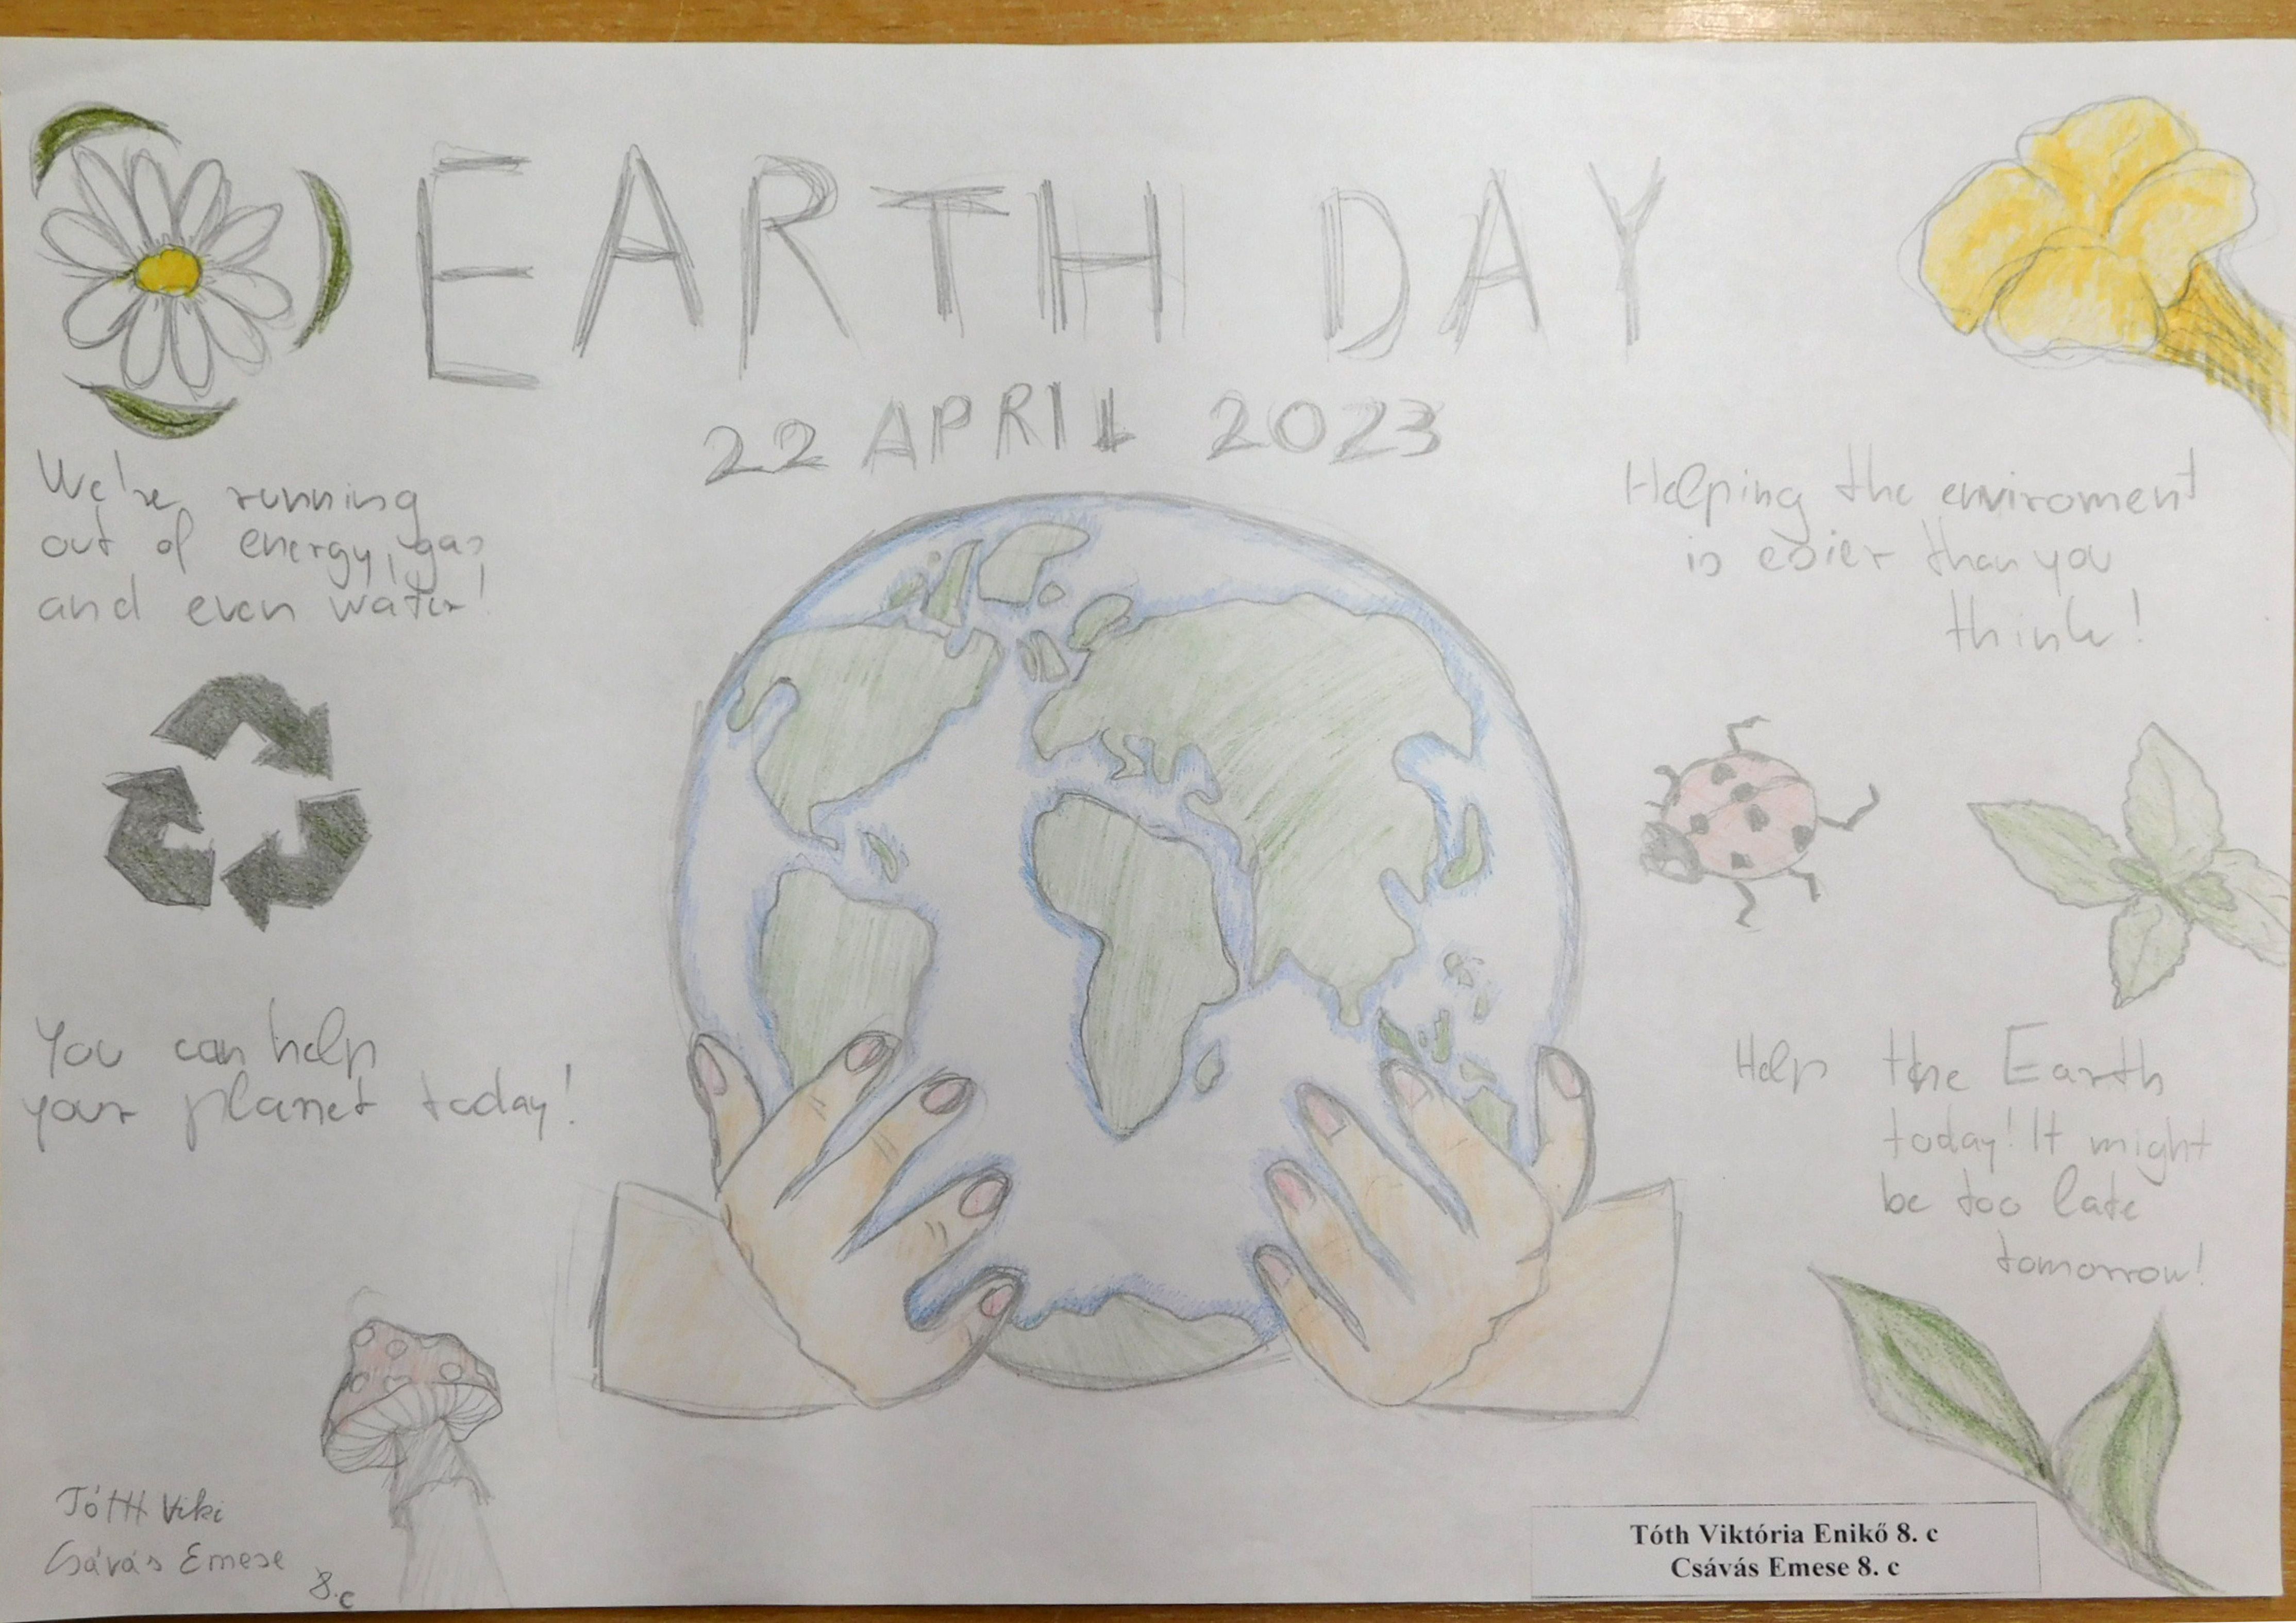 EARTH DAY
22 APRIL 2023
We're running
out of energy, gas
and even water!
Helping the enviroment
is esier than you
think!
You can help
your planet today!
Help the Earth
today! It might
be too late
tomorrow!
TótH Viki
Csávás Emese
8.c
Tóth Viktória Enikő 8. c
Csávás Emese 8. c